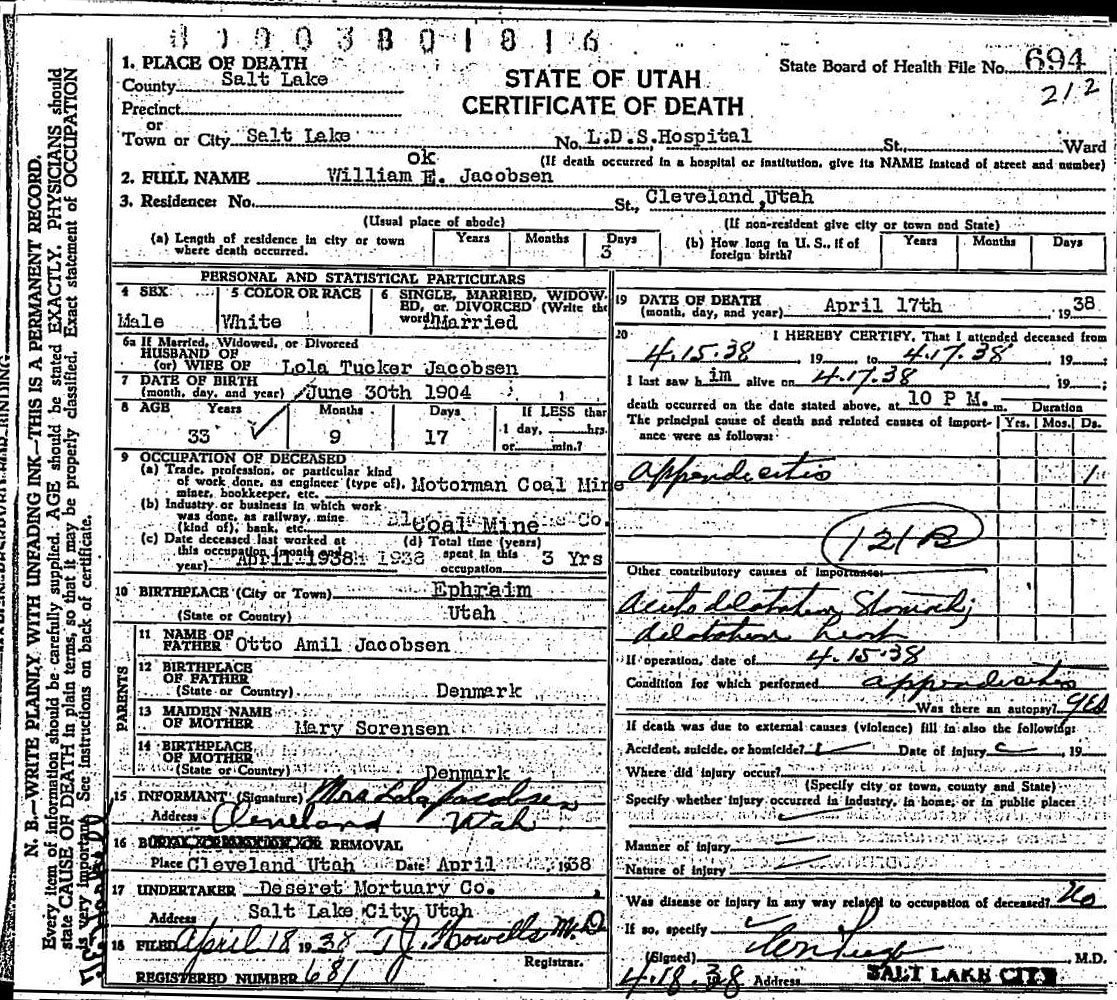 0 0 0 0 3 8 0 1 8 1 6
1. PLACE OF DEATH
County Salt Lake
STATE OF UTAH
CERTIFICATE OF DEATH
State Board of Health File No. 694
212
Precinct
or
Town or City Salt Lake No. L.D.S.Hospital St., Ward
(If death occurred in a hospital or institution, give its NAME instead of street and number)
ok
2. FULL NAME William E. Jacobsen
3. Residence: No. St., Cleveland, Utah
(Usual place of abode) (If non-resident give city or town and State)
(a) Length of residence in city or town where death occurred. Years Months Days 3
(b) How long in U. S., if of foreign birth? Years Months Days
PERSONAL AND STATISTICAL PARTICULARS
4 SEX Male
5 COLOR OR RACE White
6 SINGLE, MARRIED, WIDOWED, or DIVORCED (Write the word) Married
6a If Married, Widowed, or Divorced
HUSBAND OF
(or) WIFE OF Lola Tucker Jacobsen
7 DATE OF BIRTH
(month, day, and year) June 30th 1904
8 AGE Years 33 Months 9 Days 17 If LESS than 1 day, hrs. or min.?
9 OCCUPATION OF DECEASED
(a) Trade, profession, or particular kind of work done, as engineer (type of), miner, bookkeeper, etc. Motorman Coal Mine
(b) Industry or business in which work was done, as railway, mine (kind of), bank, etc. Coal Mine Co.
(c) Date deceased last worked at this occupation (month and year) April 1938
(d) Total time (years) spent in this occupation 3 Yrs
10 BIRTHPLACE (City or Town) Ephraim
(State or Country) Utah
PARENTS
11 NAME OF FATHER Otto Amil Jacobsen
12 BIRTHPLACE OF FATHER
(State or Country) Denmark
13 MAIDEN NAME OF MOTHER Mary Sorensen
14 BIRTHPLACE OF MOTHER
(State or Country) Denmark
15 INFORMANT (Signature) Mrs Lola Jacobsen
Address Cleveland Utah
16 BURIAL CREMATION OR REMOVAL
Place Cleveland Utah Date April 1938
17 UNDERTAKER Deseret Mortuary Co.
Address Salt Lake City Utah
18 FILED April 18 1938 T.J. Howells M.D.
Registrar.
REGISTERED NUMBER 681
19 DATE OF DEATH
(month, day, and year) April 17th 1938
20 I HEREBY CERTIFY, That I attended deceased from
4.15.38, 19 to 4.17.38 19
I last saw h im alive on 4.17.38 19
death occurred on the date stated above, at 10 P M. m. Duration
The principal cause of death and related causes of importance were as follows: Yrs. Mos. Ds.
appendicitis 1
121B
Other contributory causes of importance:
Acute dilatation Stomach;
dilatation heart
If operation, date of 4.15.38
Condition for which performed appendicitis
Was there an autopsy? yes
If death was due to external causes (violence) fill in also the following:
Accident, suicide, or homicide? Date of injury 19
Where did injury occur?
(Specify city or town, county and State)
Specify whether injury occurred in industry, in home, or in public place:
Manner of injury
Nature of injury
Was disease or injury in any way related to occupation of deceased? No
If so, specify
(Signed) M.D.
4.18.38 Address SALT LAKE CITY
N. B.—WRITE PLAINLY WITH UNFADING INK—THIS IS A PERMANENT RECORD.
Every item of information should be carefully supplied. AGE should be stated EXACTLY. PHYSICIANS should
state CAUSE OF DEATH in plain terms, so that it may be properly classified. Exact statement of OCCUPATION
is very important. See instructions on back of certificate.